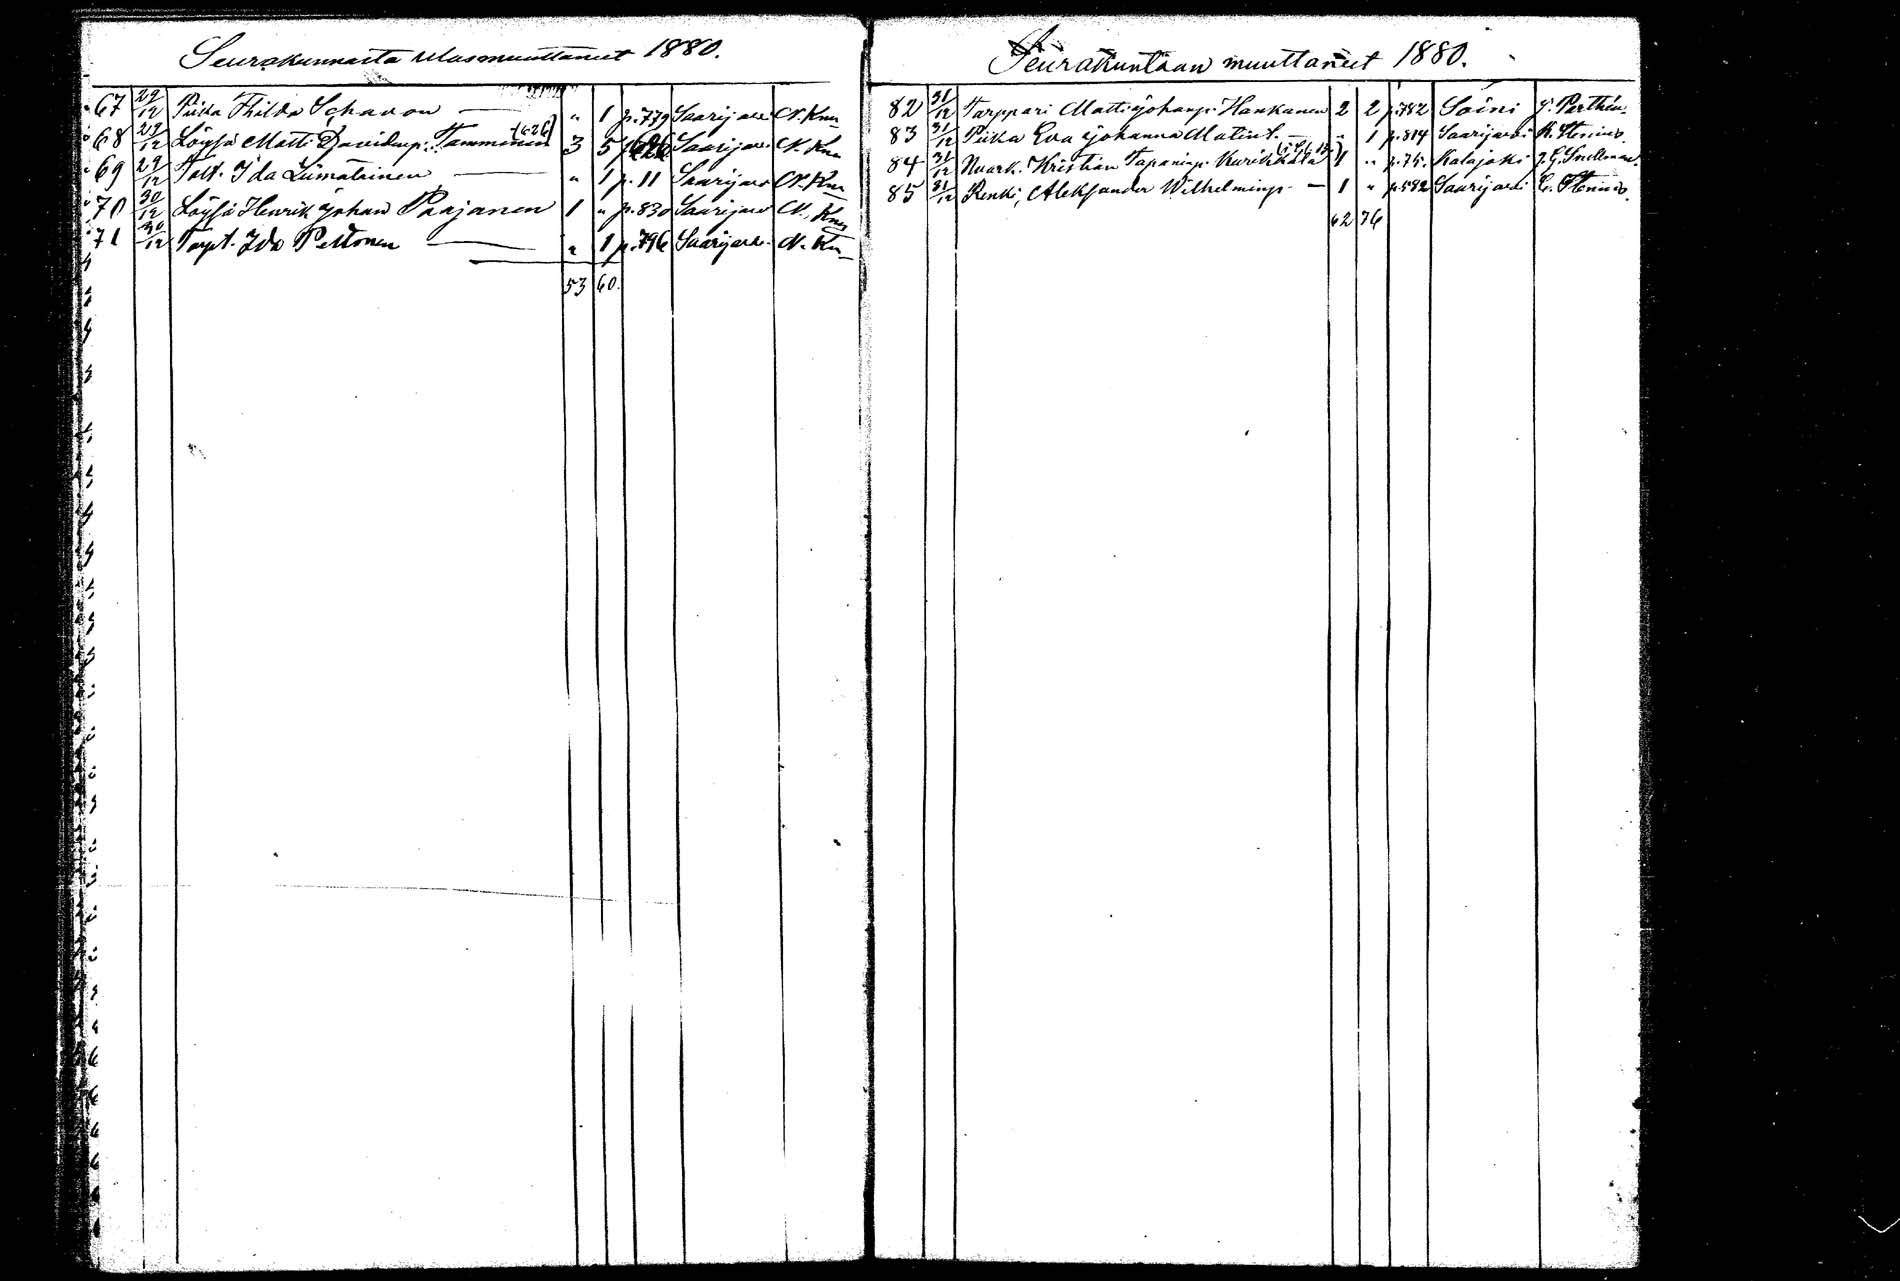 Seurakunnasta ulosmuuttaneet 1880.
67 29/12 Piika Thilda Schavon — " 1 p. 779 Saarijärvi N. Knu
68 29/12 Löysä Matti Davidinp. Tamminen (626) 3 5 p. 626 Saarijärvi N. Knu
69 29/12 Talt. Ida Liimatainen — " 1 p. 11 Saarijärvi N. Knu
70 30/12 Löysä Henrik Johan Paajanen 1 " p. 830 Saarijärvi N. Knu
71 30/12 Torpt. Ida Peltonen — " 1 p. 796 Saarijärvi N. Knu
53 60.
Seurakuntaan muuttaneet 1880.
82 31/12 Torppari Matti Johanp. Hankanen 2 2 p. 782 Soini
83 31/12 Piika Eva Johanna Matint. — " 1 p. 814 Saarijärvi K. Stenius
84 31/12 Nuork. Kristian Tapaninp. Kurikkala 1 " p. 75. Kalajoki J. G. Snellman
85 31/12 Renki, Aleksander Wilhelminp. — 1 " p. 582 Saarijärvi C. Stenius.
62 76